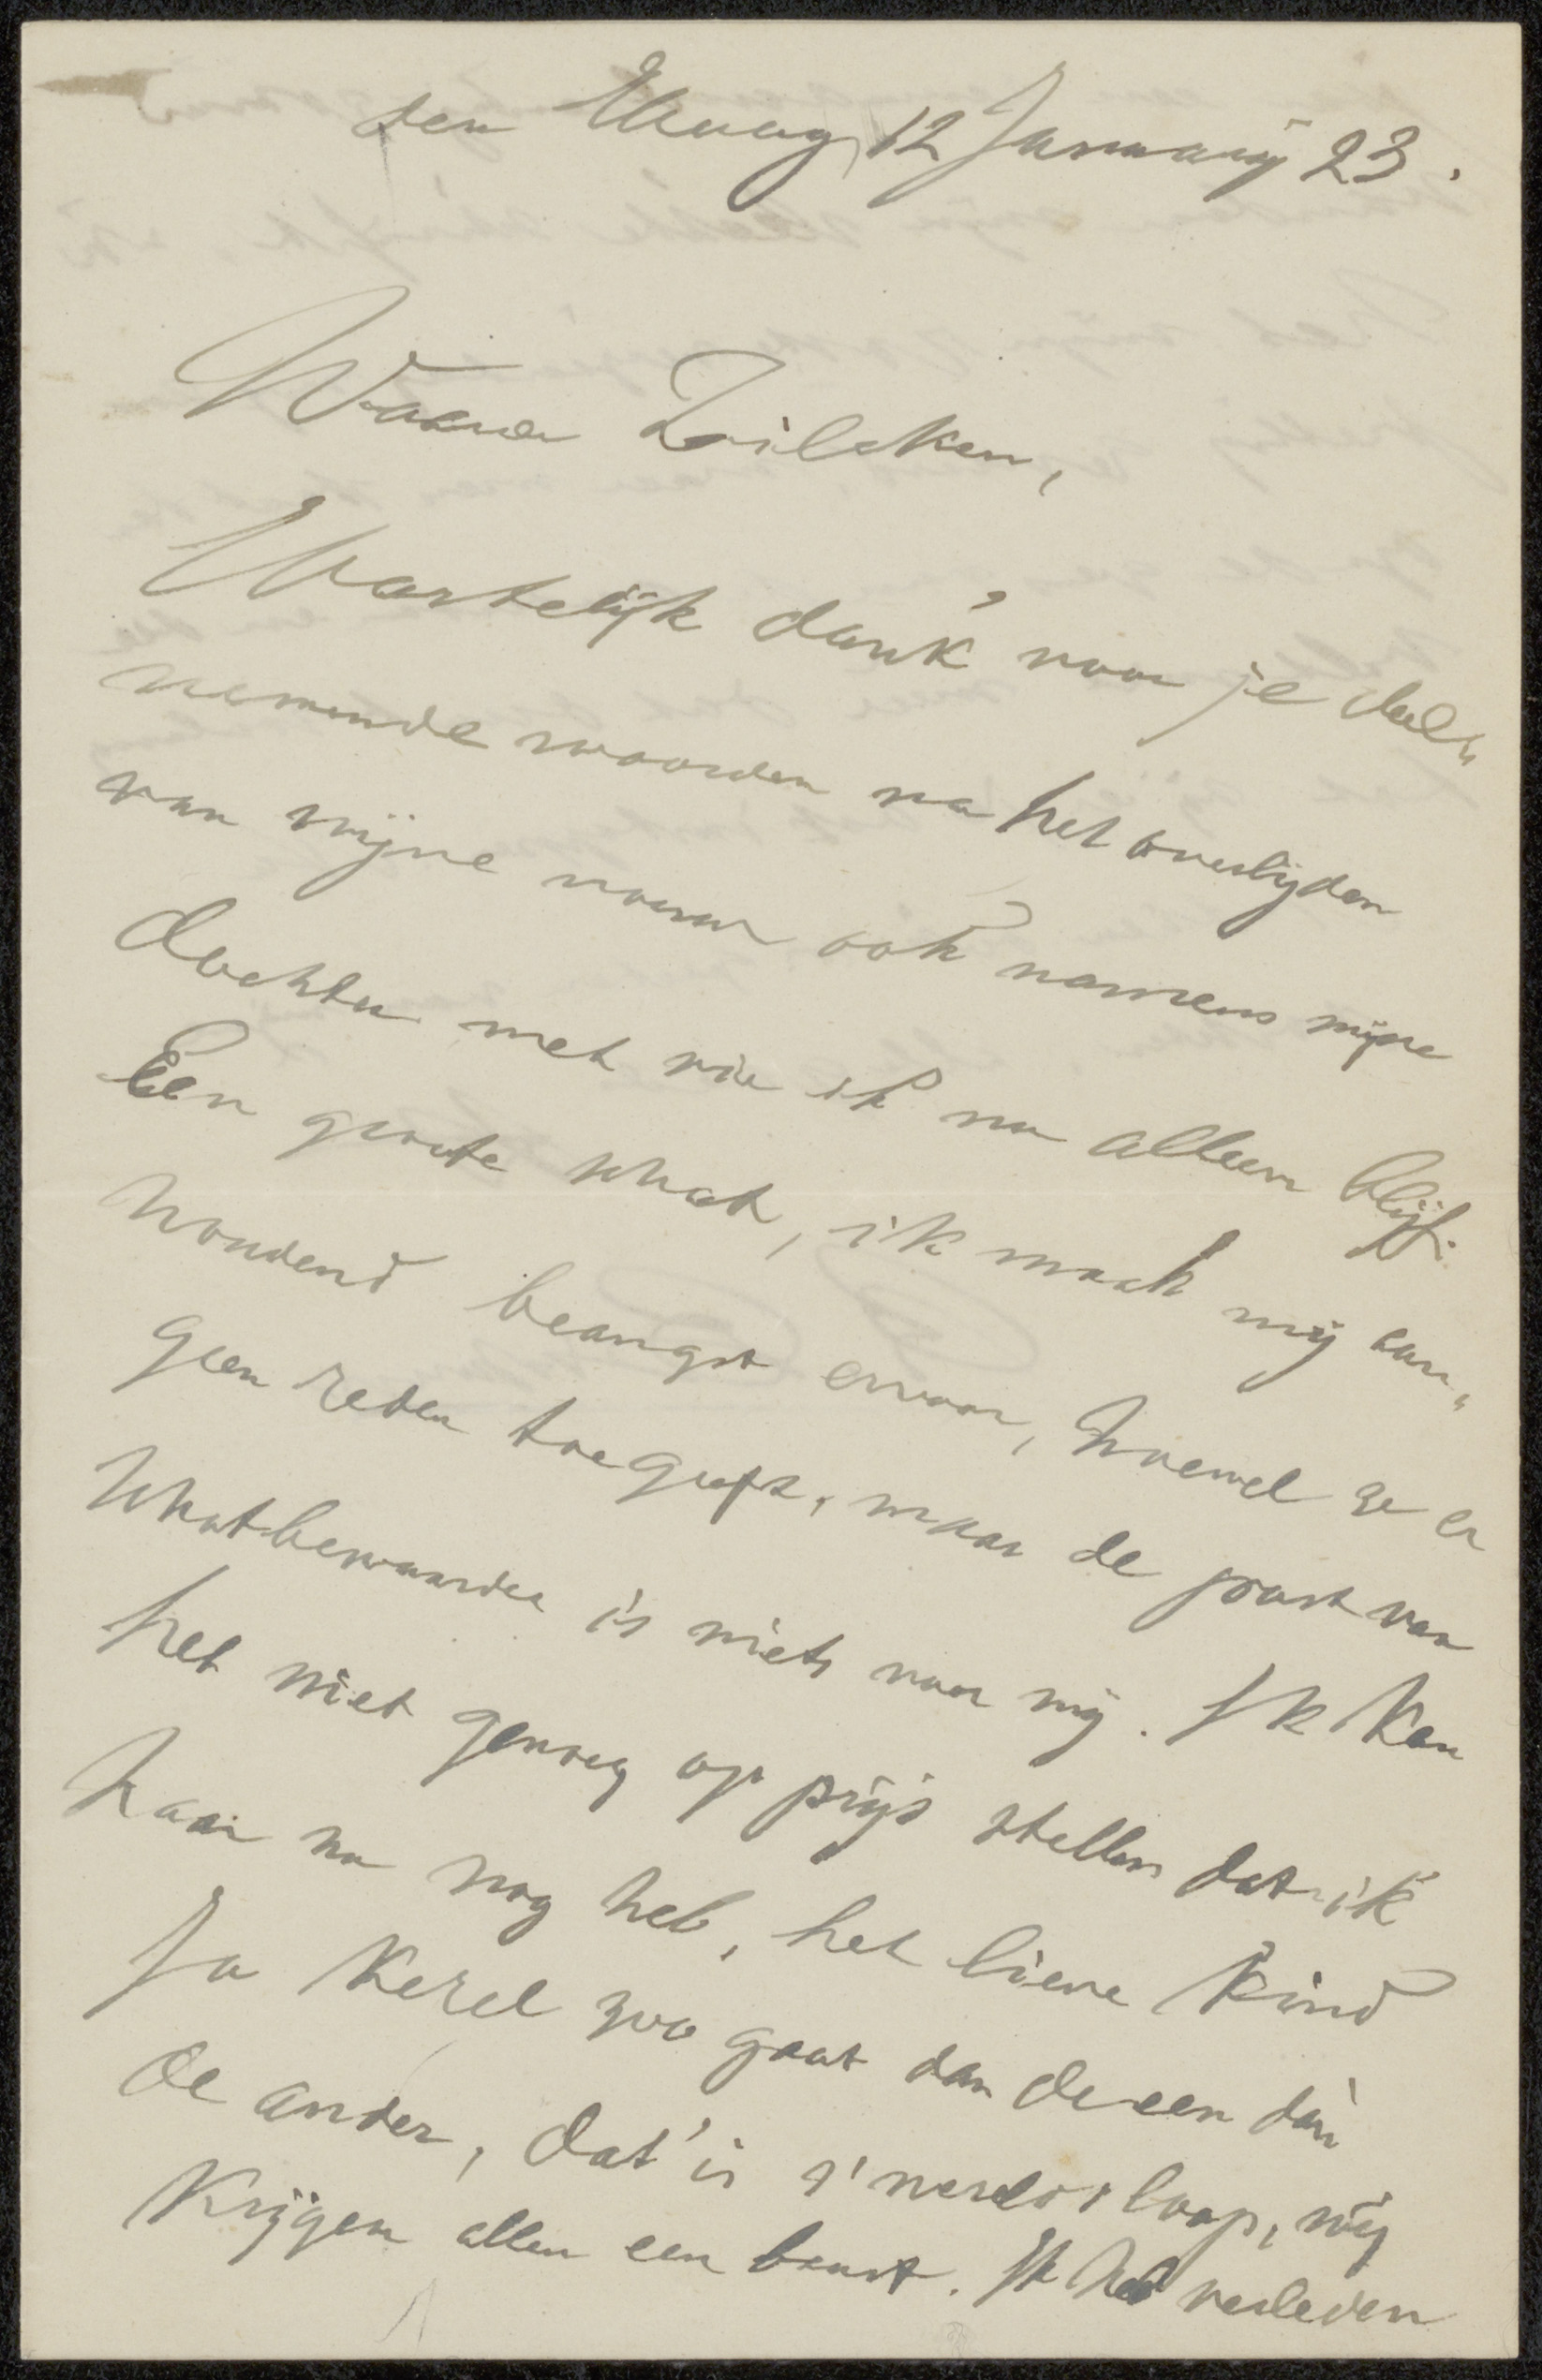 den Haag 12 Januarij 23.
Waarde Zilcken,
Hartelijk dank voor je deel„
nemende woorden na het overlijden
van mijne vrouw ook namens mijne
dochter met wie ik nu alleen blijf.
Een groote schat, ik maak mij aan„
houdend beangst ervoor, hoewel ze er
geen reden toe geeft, maar de post van
schatbewaarder is niets voor mij. Ik kan
het niet genoeg op prijs stellen dat ik
haar nu nog heb, het lieve kind
Ja kerel zoo gaat dan de een dan
de ander, dat is 's werelds loop, wij
krijgen allen een beurt. Ik heb verleden